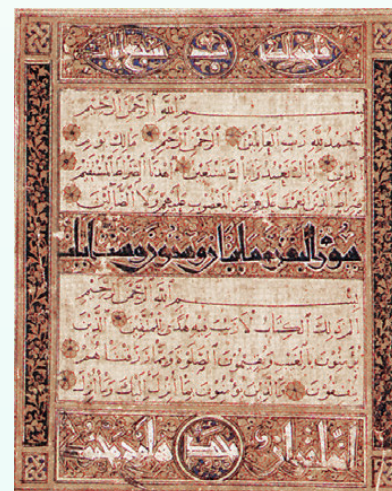 بِسْمِ ٱللَّهِ ٱلرَّحْمَٰنِ ٱلرَّحِيمِ
ٱلْحَمْدُ لِلَّهِ رَبِّ ٱلْعَالَمِينَ ٱلرَّحْمَٰنِ ٱلرَّحِيمِ مَالِكِ يَوْمِ
ٱلدِّينِ إِيَّاكَ نَعْبُدُ وَإِيَّاكَ نَسْتَعِينُ ٱهْدِنَا ٱلصِّرَاطَ ٱلْمُسْتَقِيمَ
صِرَاطَ ٱلَّذِينَ أَنْعَمْتَ عَلَيْهِمْ غَيْرِ ٱلْمَغْضُوبِ عَلَيْهِمْ وَلَا ٱلضَّالِّينَ
سورة البقرة مايتان
بِسْمِ ٱللَّهِ ٱلرَّحْمَٰنِ ٱلرَّحِيمِ
الم ذَٰلِكَ ٱلْكِتَابُ لَا رَيْبَ فِيهِ هُدًى لِلْمُتَّقِينَ ٱلَّذِينَ
يُؤْمِنُونَ بِٱلْغَيْبِ وَيُقِيمُونَ ٱلصَّلَوٰةَ وَمِمَّا رَزَقْنَاهُمْ
يُنْفِقُونَ وَٱلَّذِينَ يُؤْمِنُونَ بِمَا أُنْزِلَ إِلَيْكَ وَمَا أُنْزِلَ